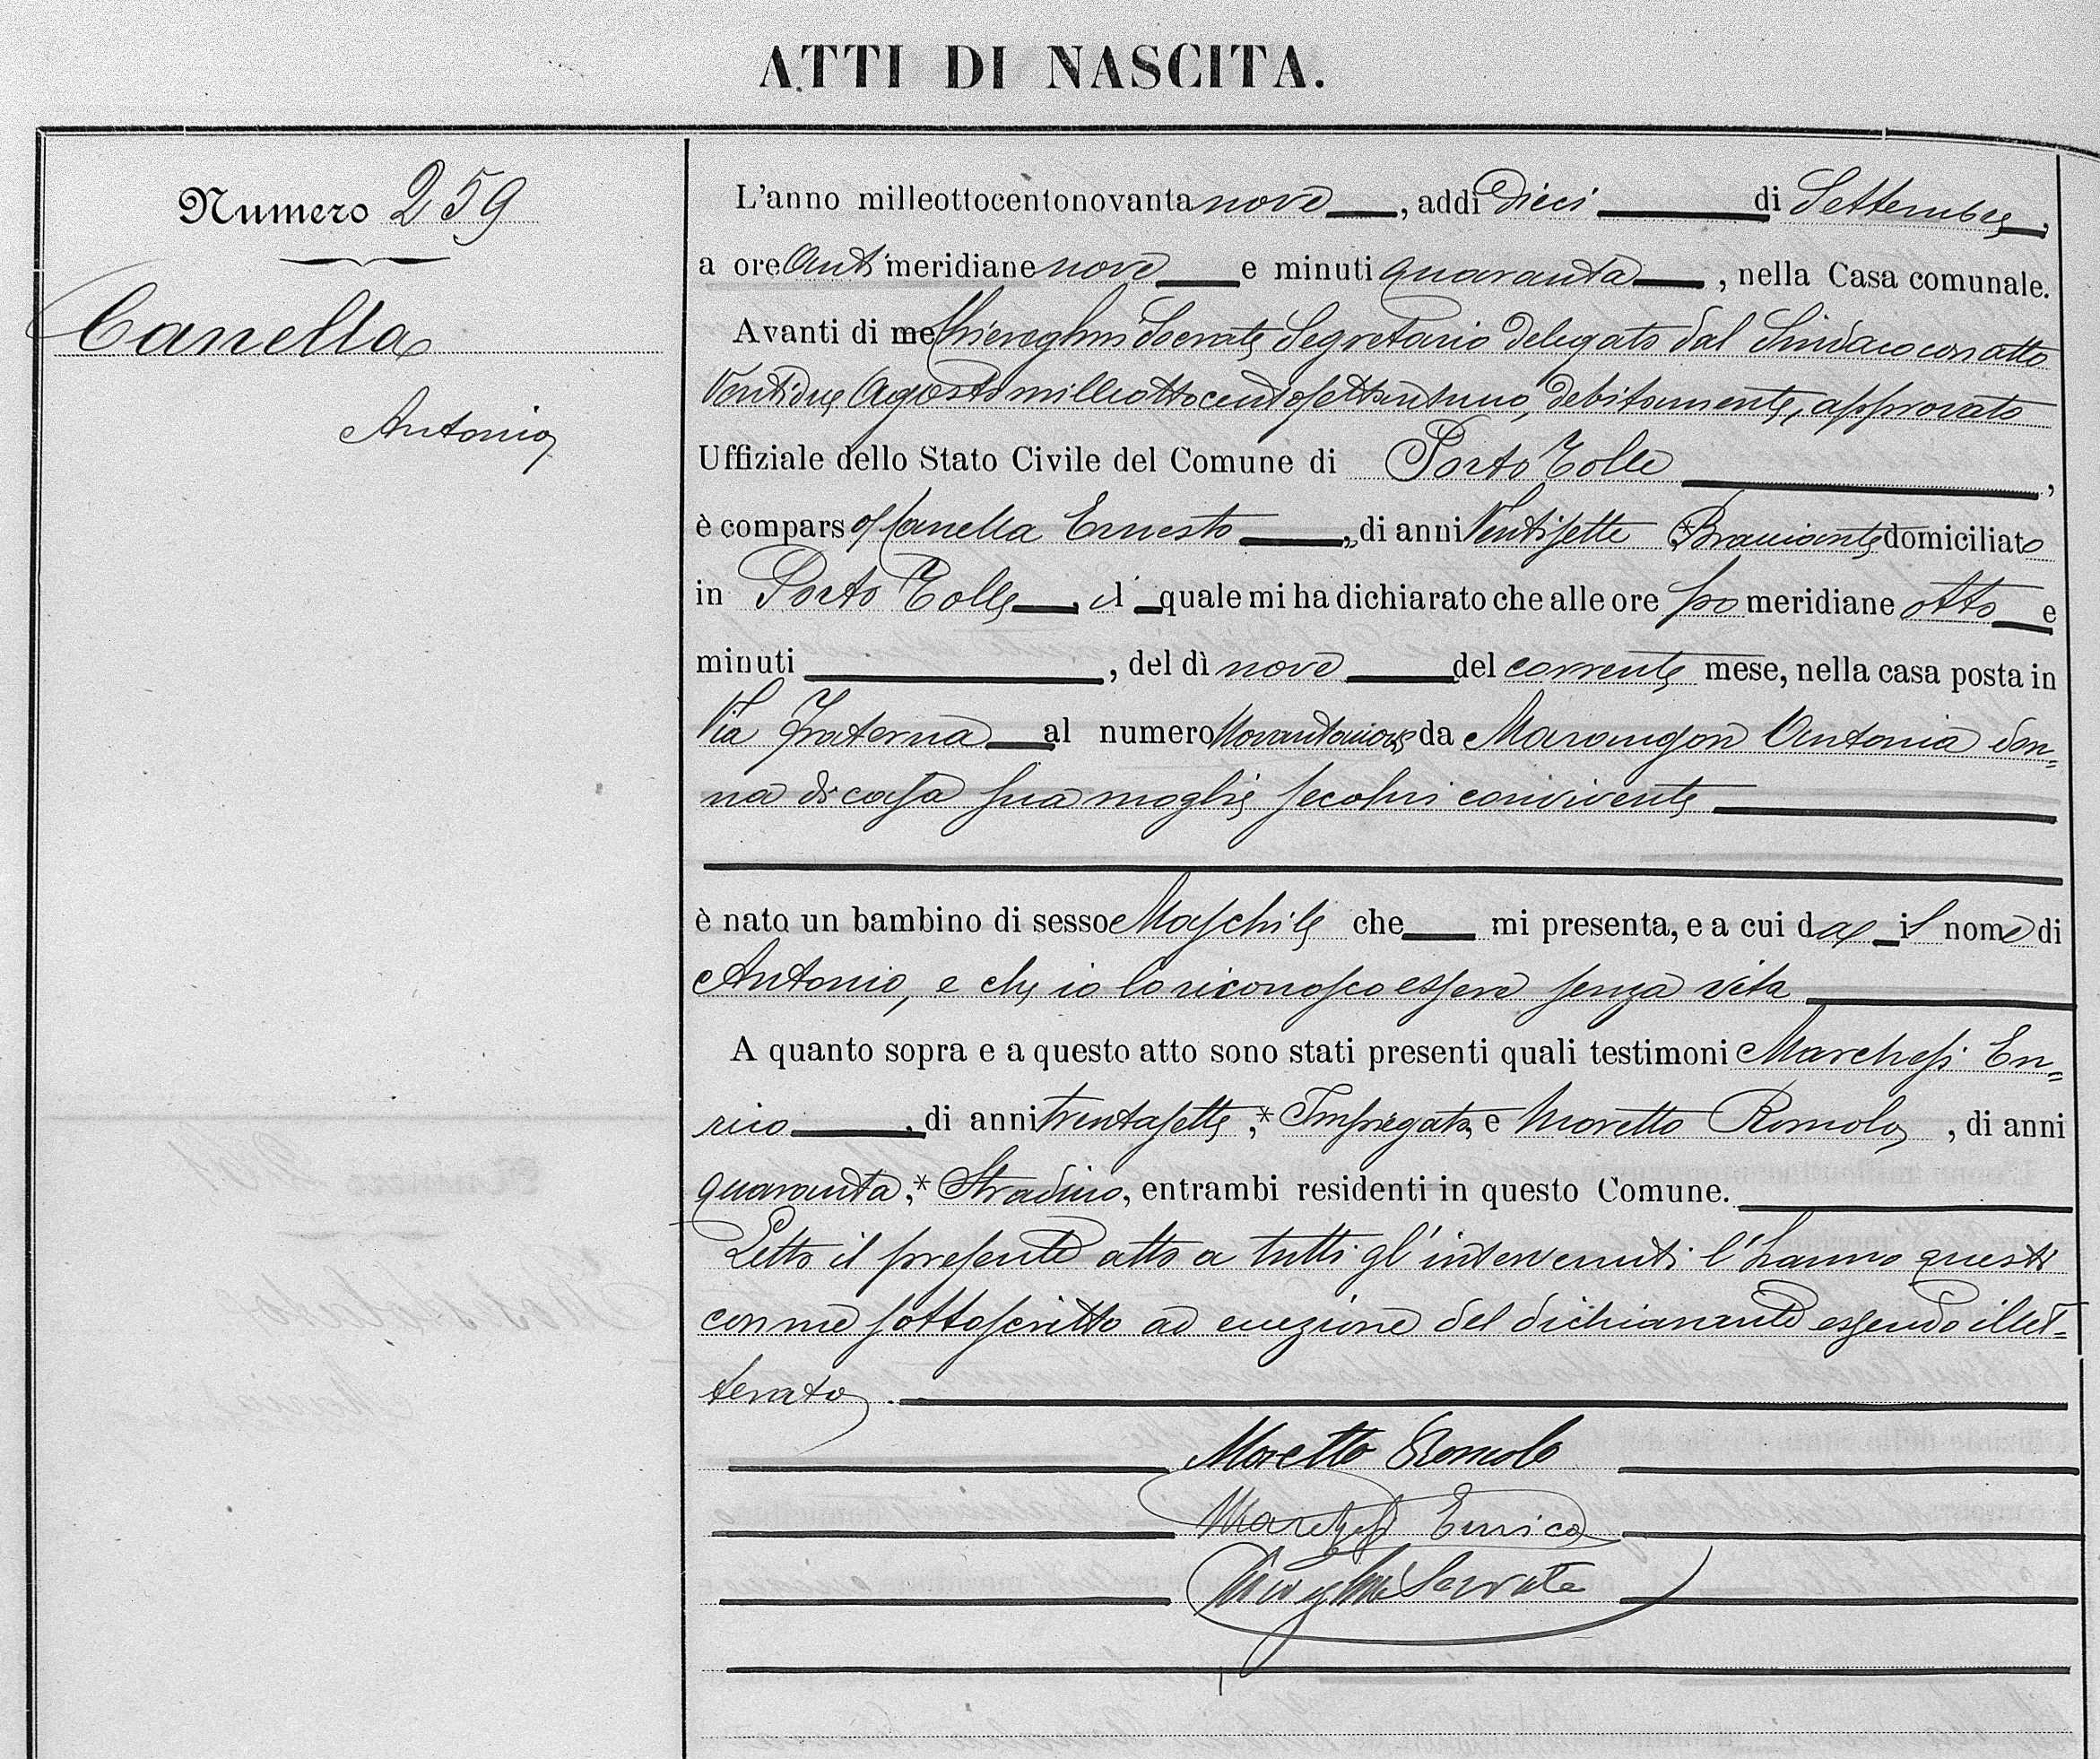 ATTI DI NASCITA.
Numero 259
Canella
Antonio
L'anno milleottocentonovanta nove, addì Dieci di Settembre,
a ore Anti meridiane nove e minuti quaranta, nella Casa comunale.
Avanti di me Chiereghin Socrate Segretario delegato dal Sindaco con atto
Ventidue Agosto milleottocentosettantuno, debitamente, approvato
Uffiziale dello Stato Civile del Comune di Porto Tolle,
è comparso Canella Ernesto, di anni Ventisette * Bracciante domiciliato
in Porto Tolle, il quale mi ha dichiarato che alle ore po meridiane otto e
minuti, del dì nove del corrente mese, nella casa posta in
Via Fraterna al numero Novantanove da Marangon Antonia don=
na di casa sua moglie secolui convivente
è nato un bambino di sesso Maschile che mi presenta, e a cui da il nome di
Antonio, e che io lo riconosco essere senza vita
A quanto sopra e a questo atto sono stati presenti quali testimoni Marchesi En=
rico, di anni trentasette,* Impiegato, e Moretto Romolo, di anni
quaranta,* Stradino, entrambi residenti in questo Comune.
Letto il presente atto a tutti gl'intervenuti l'hanno questi
con me sottoscritto ad eccezione del dichiarante essendo illet=
terato.
Moretto Romolo
Marchesi Enrico
Chiereghin Socrate